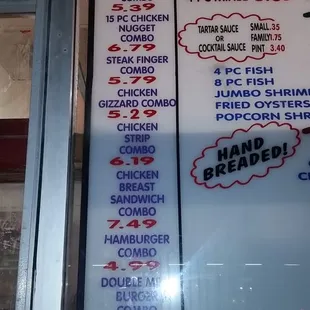 5.39
15 PC CHICKEN
NUGGET
COMBO
6.79
STEAK FINGER
COMBO
5.79
CHICKEN
GIZZARD COMBO
5.29
CHICKEN
STRIP
COMBO
6.19
CHICKEN
BREAST
SANDWICH
COMBO
7.49
HAMBURGER
COMBO
4.99
DOUBLE
BURGER
COMBO
TARTAR SAUCE
OR
COCKTAIL SAUCE
SMALL .35
FAMILY 1.75
PINT 3.40
4 PC FISH
8 PC FISH
JUMBO SHRIM
FRIED OYSTERS
POPCORN SHR
HAND
BREADED!